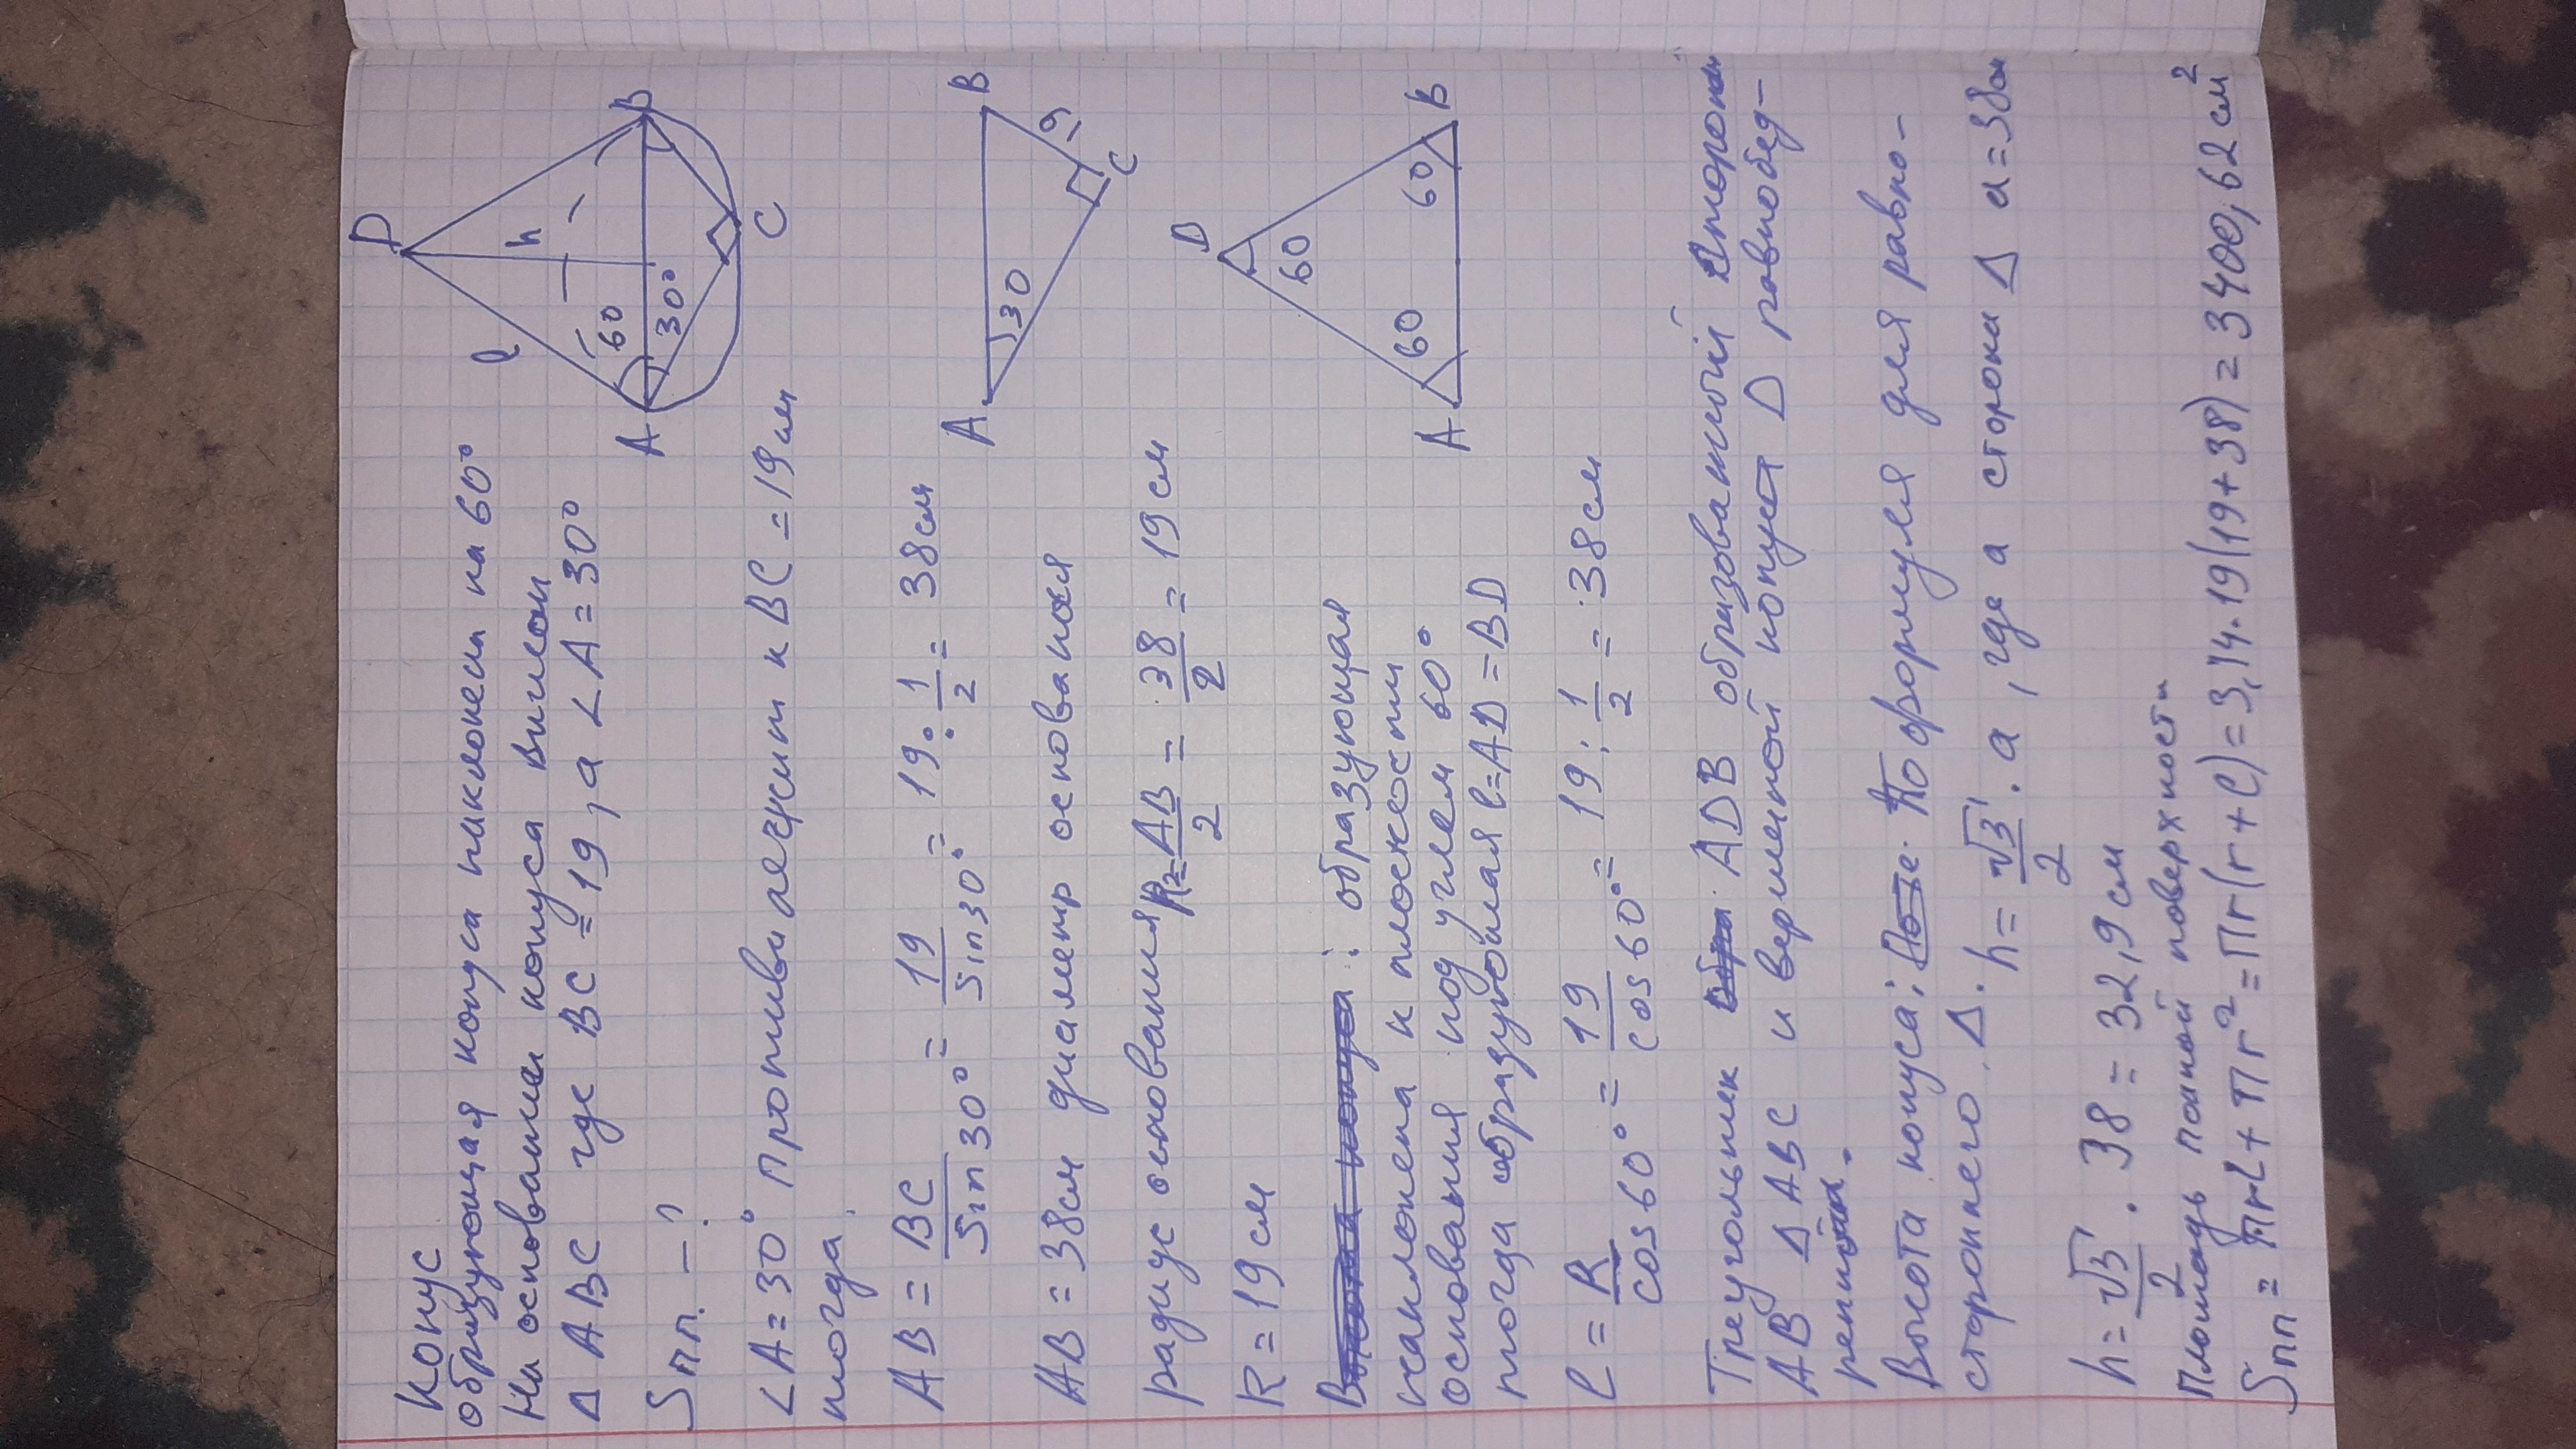 Конус
образующая конуса наклонена на 60°
На основании конуса вписан
Δ ABC где BC = 19, а ∠A = 30°
Sпп. – ?
∠A = 30° противолежит к BC = 19 см
тогда
AB = BC/Sin30° = 19/Sin30° = 19 : 1/2 = 38 см
AB = 38 см диаметр основания
радиус основания R = AB/2 = 38/2 = 19 см
R = 19 см
образующая
наклонена к плоскости
основания под углем 60°
тогда образующая l = AD = BD
l = R/cos60° = 19/cos60° = 19 : 1/2 = 38 см
Треугольник ADB образованный стороной
AB Δ ABC и вершиной конуса Δ равнобед-
Высота конуса; По формуле для равно-
стороннего Δ. h = √3/2 · a, где a сторона Δ a = 38 см
h = √3/2 · 38 = 32,9 см
Площадь полной поверхности
Sпп = πrL + πr² = πr(r + l) = 3,14 · 19(19 + 38) = 3400,62 см²
D
l
h
60
30°
A
B
C
A
30
B
19
C
D
60
60
60
A
B